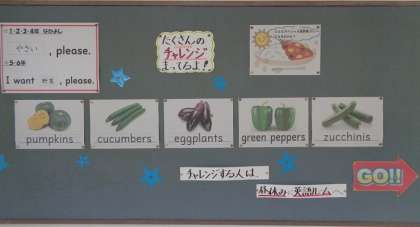 ☆1・2・3・4年 なかよし
やさい , please.
☆5・6年
I want 野菜, please.
たくさんの
チャレンジ
まってるよ!
pumpkins
cucumbers
eggplants
green peppers
zucchinis
チャレンジする人は、
昼休み 英語ルームへ
GO!!